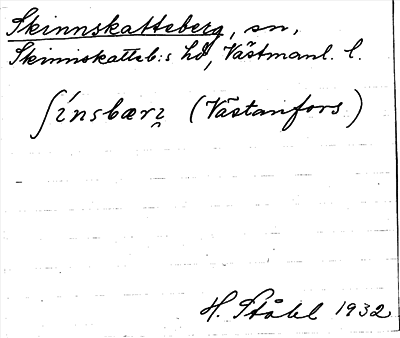 Skinnskatteberg, sn,
Skinnskatteb:s hd, Västmanl. l.
ʃínsbærı̯ (Västanfors)
H. Ståhl 1932